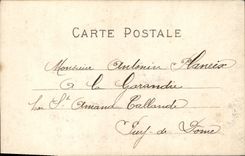 CARTE POSTALE
Monsieur Antonin Planeix
à la Garandie
par St Amand Tallende
Puy de Dome